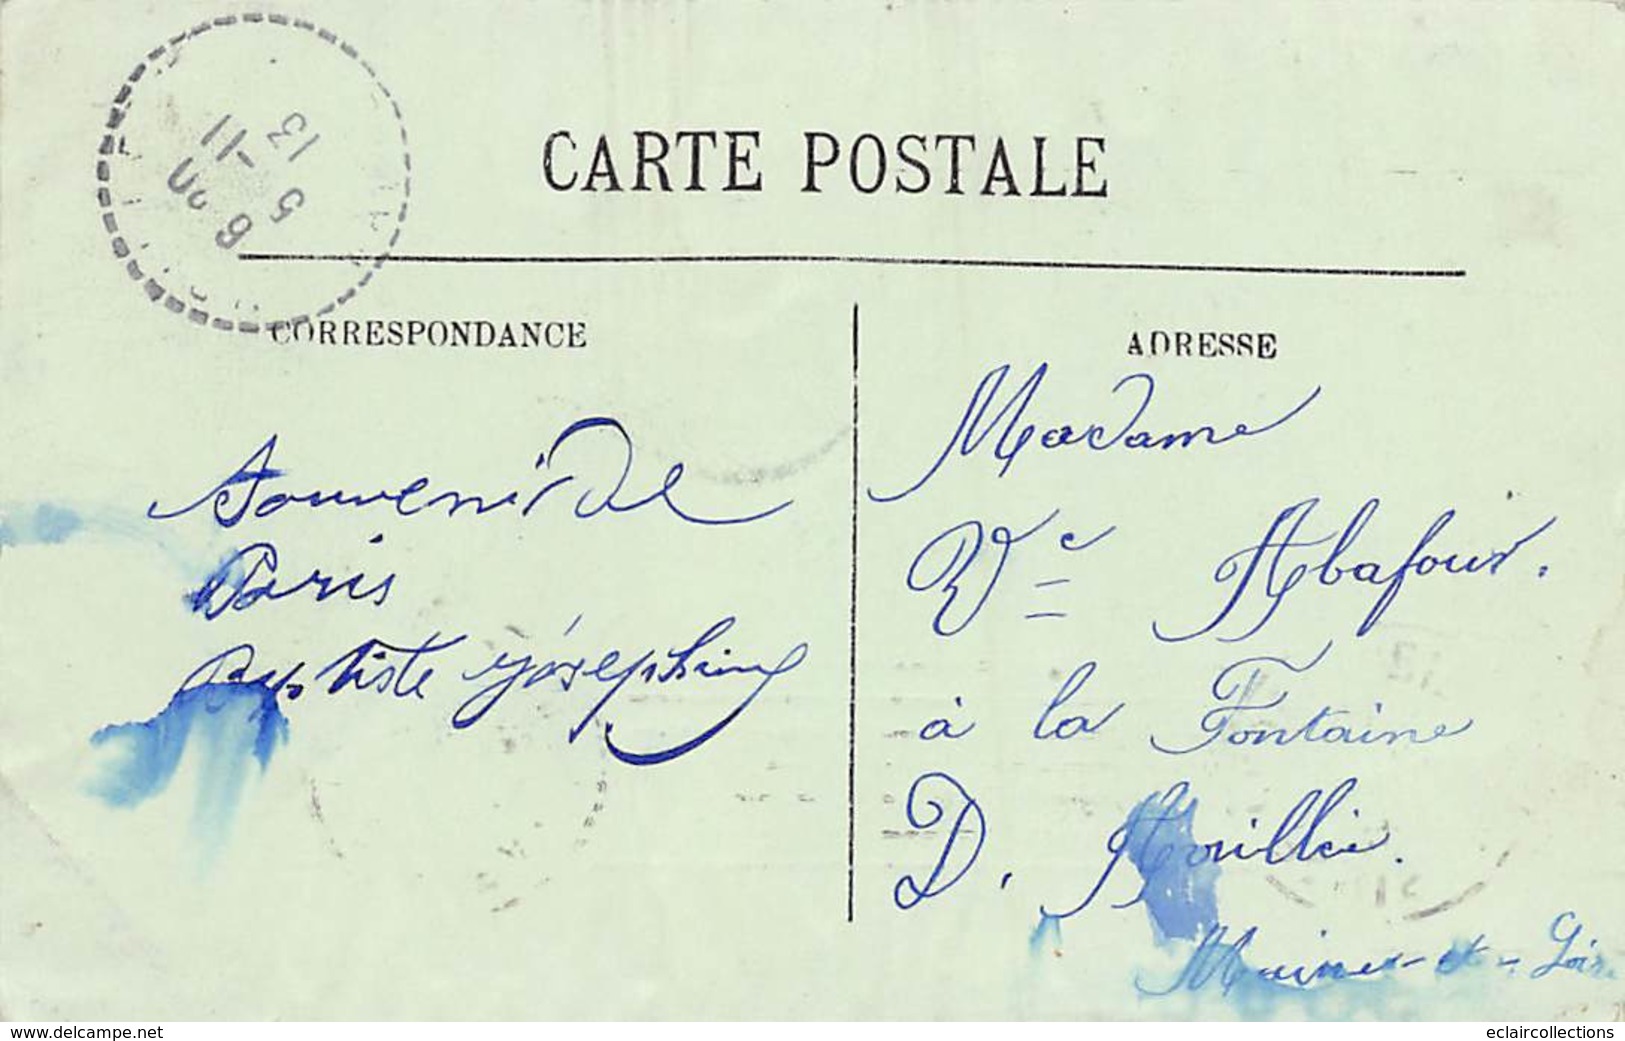 6 20
5-11
13
CARTE POSTALE
CORRESPONDANCE
ADRESSE
Souvenir de
Paris
Baptiste Joséphine
Madame
Vve Abafour.
à la Fontaine
D.
Maine-et-Loire
www.delcampe.net
eclaircollections